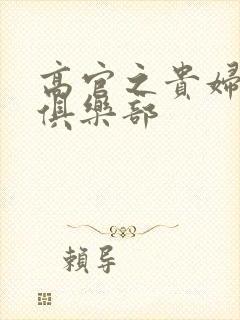 高官之貴婦
俱樂部
賴导